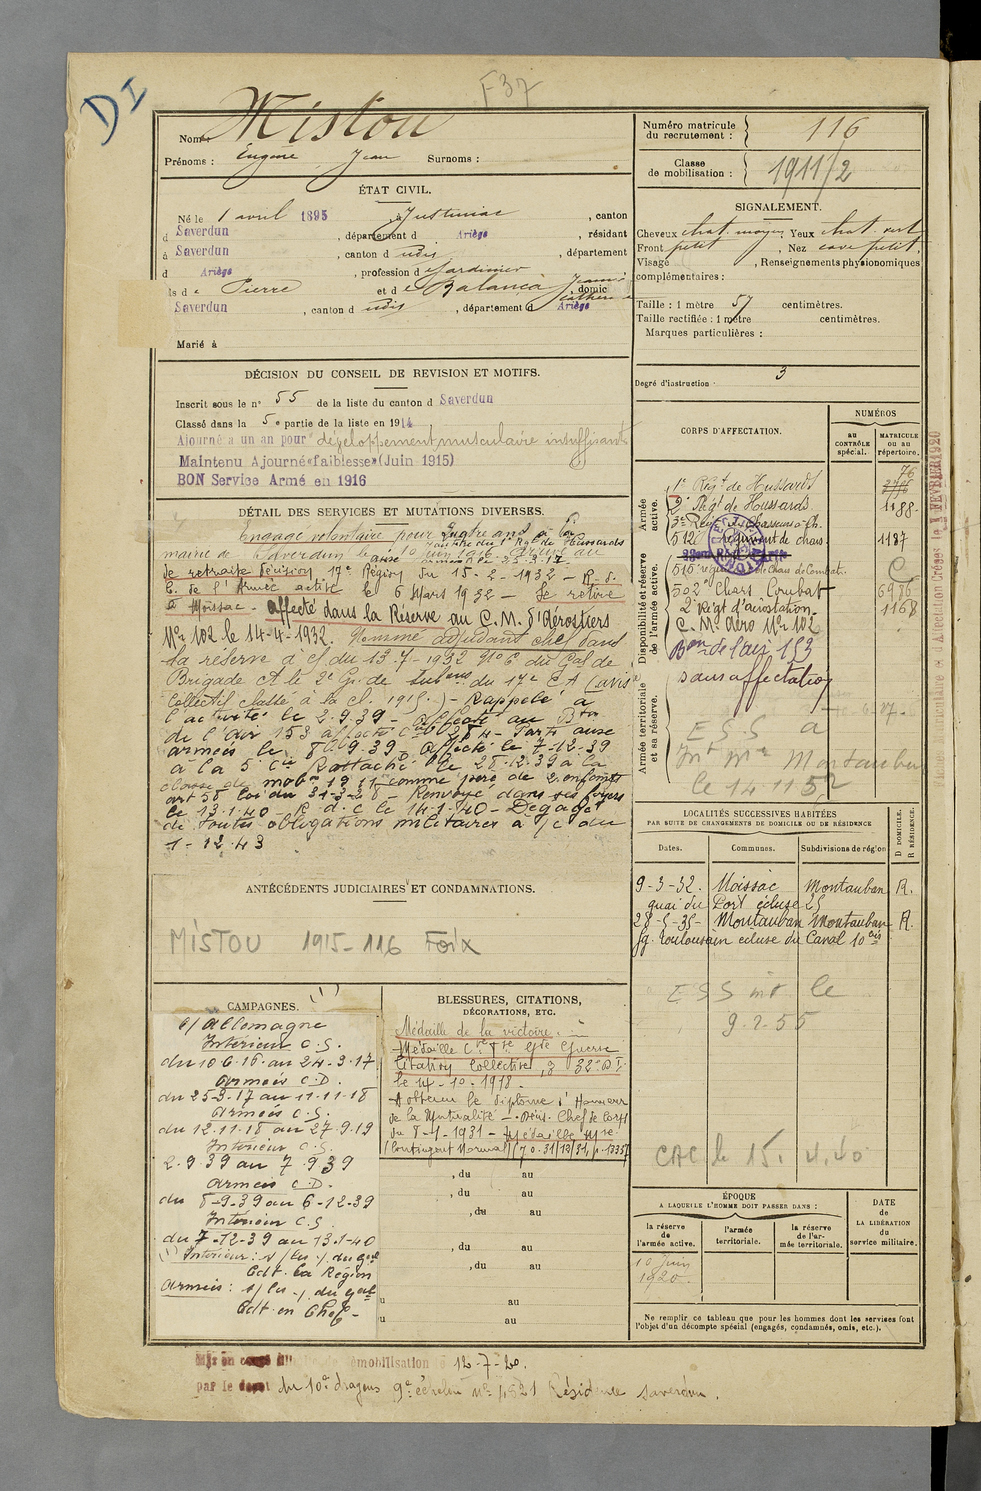 DI
F37
Nom : Mistou
Prénoms : Eugène, Jean Surnoms :
ÉTAT CIVIL.
Né le 1 avril 1895 à Justiniac, canton
d Saverdun, département d Ariège, résidant
à Saverdun, canton d udis, département
d Ariège, profession d e Jardinier
fils de Pierre et de Balança Jeanne Catherine domic
Saverdun, canton d udis, département d Ariège
Marié à
DÉCISION DU CONSEIL DE REVISION ET MOTIFS.
Inscrit sous le n° 55 de la liste du canton d Saverdun
Classé dans la 5e partie de la liste en 1914
Ajourné à un an pour "développement musculaire insuffisant"
Maintenu Ajourné «faiblesse» (Juin 1915)
BON Service Armé en 1916
DÉTAIL DES SERVICES ET MUTATIONS DIVERSES.
Engagé volontaire pour quatre ans à la
mairie de Saverdun le 10 juin 1916
de retraite Décision 17e Région du 15-2-1932 - R. d.
C. de l'Armée active le 6 Mars 1932 - Se retire
à Moissac - affecté dans la Réserve au C.M. d'Aérostiers
N° 102 le 14-4-1932. Nommé adjudant chef dans
la réserve à c/ du 13-7-1932 N° 6 du Gal de
Brigade Ct le 2e Gr. de Subons du 17e C A (avis
Collectif classé à la cl. 1915.) - Rappelé à
l'activité le 2.9.39 - affecté au Bton
de l'air 153 affecté Cie 60/284 - Parti aux
armées le 8-9-39 - Affecté le 7-12-39
à la 5e Cie Rattaché le 28-12-39 à la
classe de mobon 1911 comme père de 2 enfants
art 58 loi du 31-3-28 - Renvoyé dans ses foyers
le 13-1-40 - R.d.c le 14-1-40 - Dégagé
de toutes obligations militaires à /c du
1-12-43
ANTÉCÉDENTS JUDICIAIRES ET CONDAMNATIONS.
MISTOU 1915-116 Foix
CAMPAGNES. (1)
c/ Allemagne
Intérieur C.S.
du 10.6.16 au 24-3-17
Armées C.D.
du 25-3-17 au 11-11-18
Armées C.S.
du 12.11.18 au 27-9-19
Intérieur C.S.
2.9.39 au 7.9.39
Armées C.D.
du 8-9-39 au 6-12-39
Intérieur C.S.
du 7-12-39 au 13-1-40
(1) Intérieur : s/les./. du Gal
Cdt. la Région
Armées : s/les ./. du Gal
Cdt. en Chef -
BLESSURES, CITATIONS,
DÉCORATIONS, ETC.
Médaille de la victoire.
Médaille Cve Fse Gde Guerre
Citation Collective, 32e D.I.
le 14-10-1918.
A obtenu le Diplôme d'Honneur
de la Mutualité - Décis. Chef de Corps
du 8-1-1931 - Médaille Mre.
(Contingent Normal) (J.O. 31/12/31, p. 13357
, du au
, du au
, du au
, du au
, du au
u au
u au
Numéro matricule
du recrutement : 116
Classe
de mobilisation : 1911/2
SIGNALEMENT.
Cheveux chat. moyen, Yeux chat. vert
Front petit, Nez cave petit.
Visage, Renseignements physionomiques
complémentaires :
Taille : 1 mètre 57 centimètres.
Taille rectifiée : 1 mètre centimètres.
Marques particulières :
Degré d'instruction : 3
CORPS D'AFFECTATION.
NUMÉROS
AU
CONTRÔLE
spécial.
MATRICULE
ou au
répertoire.
Armée
active.
Disponibilité et réserve
de l'armée active.
Armée territoriale
et sa réserve.
1e Régt de Hussards 76
2e Régt de Hussards 1188
512 régiment de chars. 1187
502 Chars Combat 6986
2e Régt d'aérostation. 1168
C. M. Aéro N° 102
Bon de l'air 153
sans affectation
E S S à
Int Mre Montauban
le 14 11 52
LOCALITÉS SUCCESSIVES HABITÉES
PAR SUITE DE CHANGEMENTS DE DOMICILE OU DE RÉSIDENCE
D DOMICILE.
R RÉSIDENCE.
Dates. Communes. Subdivisions de région
9-3-32. Moissac Montauban R.
quai du Port écluse 25
28-5-35- Montauban Montauban R.
fg. Toulousain écluse du Canal 10 bis
E S S mt le
9-2-55
CAC. le 15. 4.40
ÉPOQUE
A LAQUELLE L'HOMME DOIT PASSER DANS :
la réserve
de
l'armée active.
l'armée
territoriale.
la réserve
de l'ar-
mée territoriale.
DATE
de
LA LIBÉRATION
du
service militaire.
10 Juin
1920.
Ne remplir ce tableau que pour les hommes dont les services font
l'objet d'un décompte spécial (engagés, condamnés, omis, etc.).
Mis en congé démobilisation le 12-7-20.
par le dépôt du 10e dragons 9e échelon n° 4521 Résidence Saverdun.